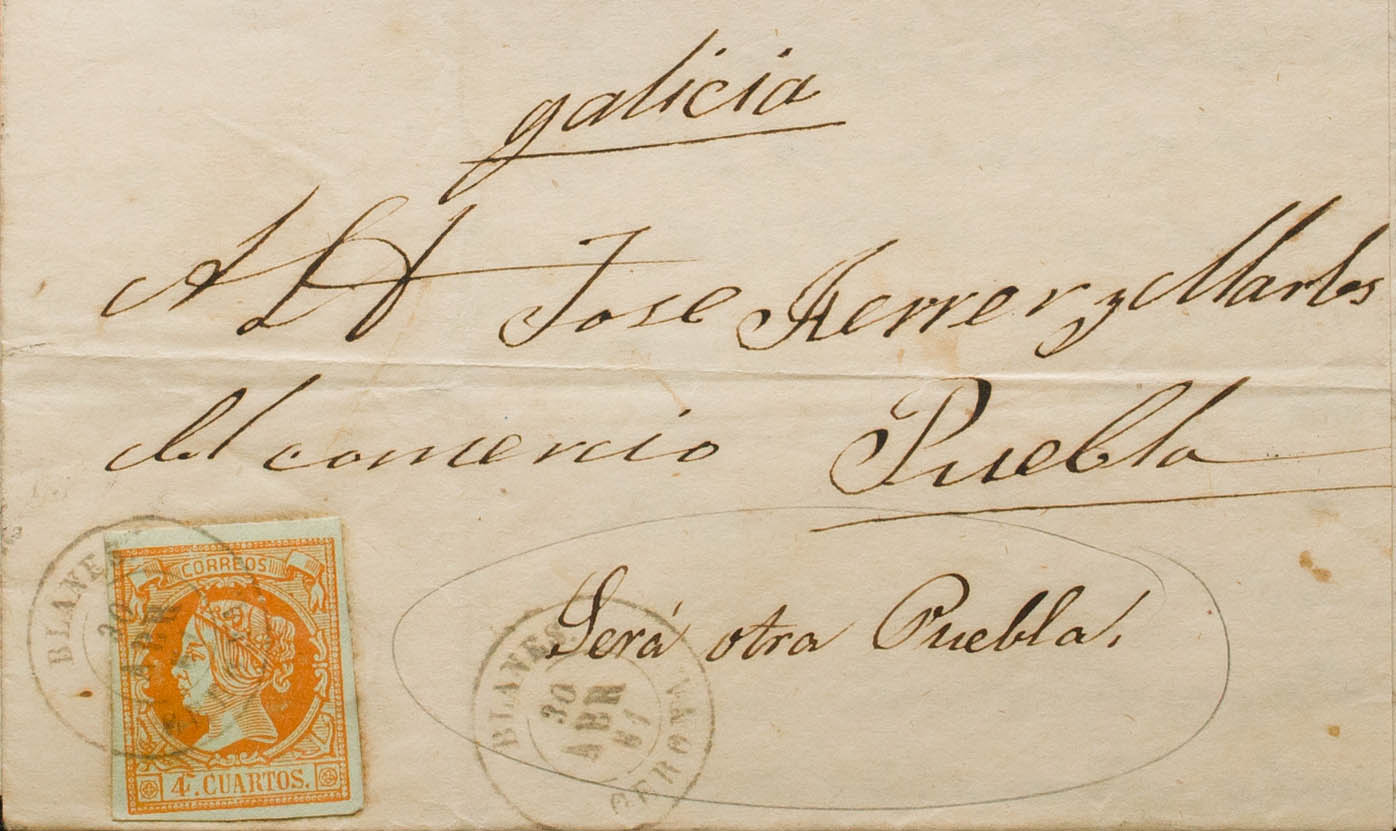 galicia
A D Jose Ferrer y Marles
del comercio Puebla
Será otra Puebla.
CORREOS
4 CS. CUARTOS.
BLANES
30
ABR
BLANES
30
ABR
61
GERONA